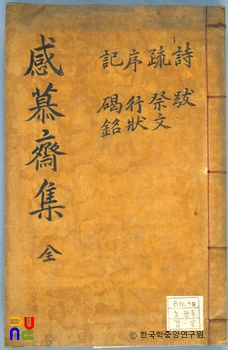 詩 跋
疏 祭文
序 行狀
記 碣銘
感慕齋集 全
© 한국학중앙연구원